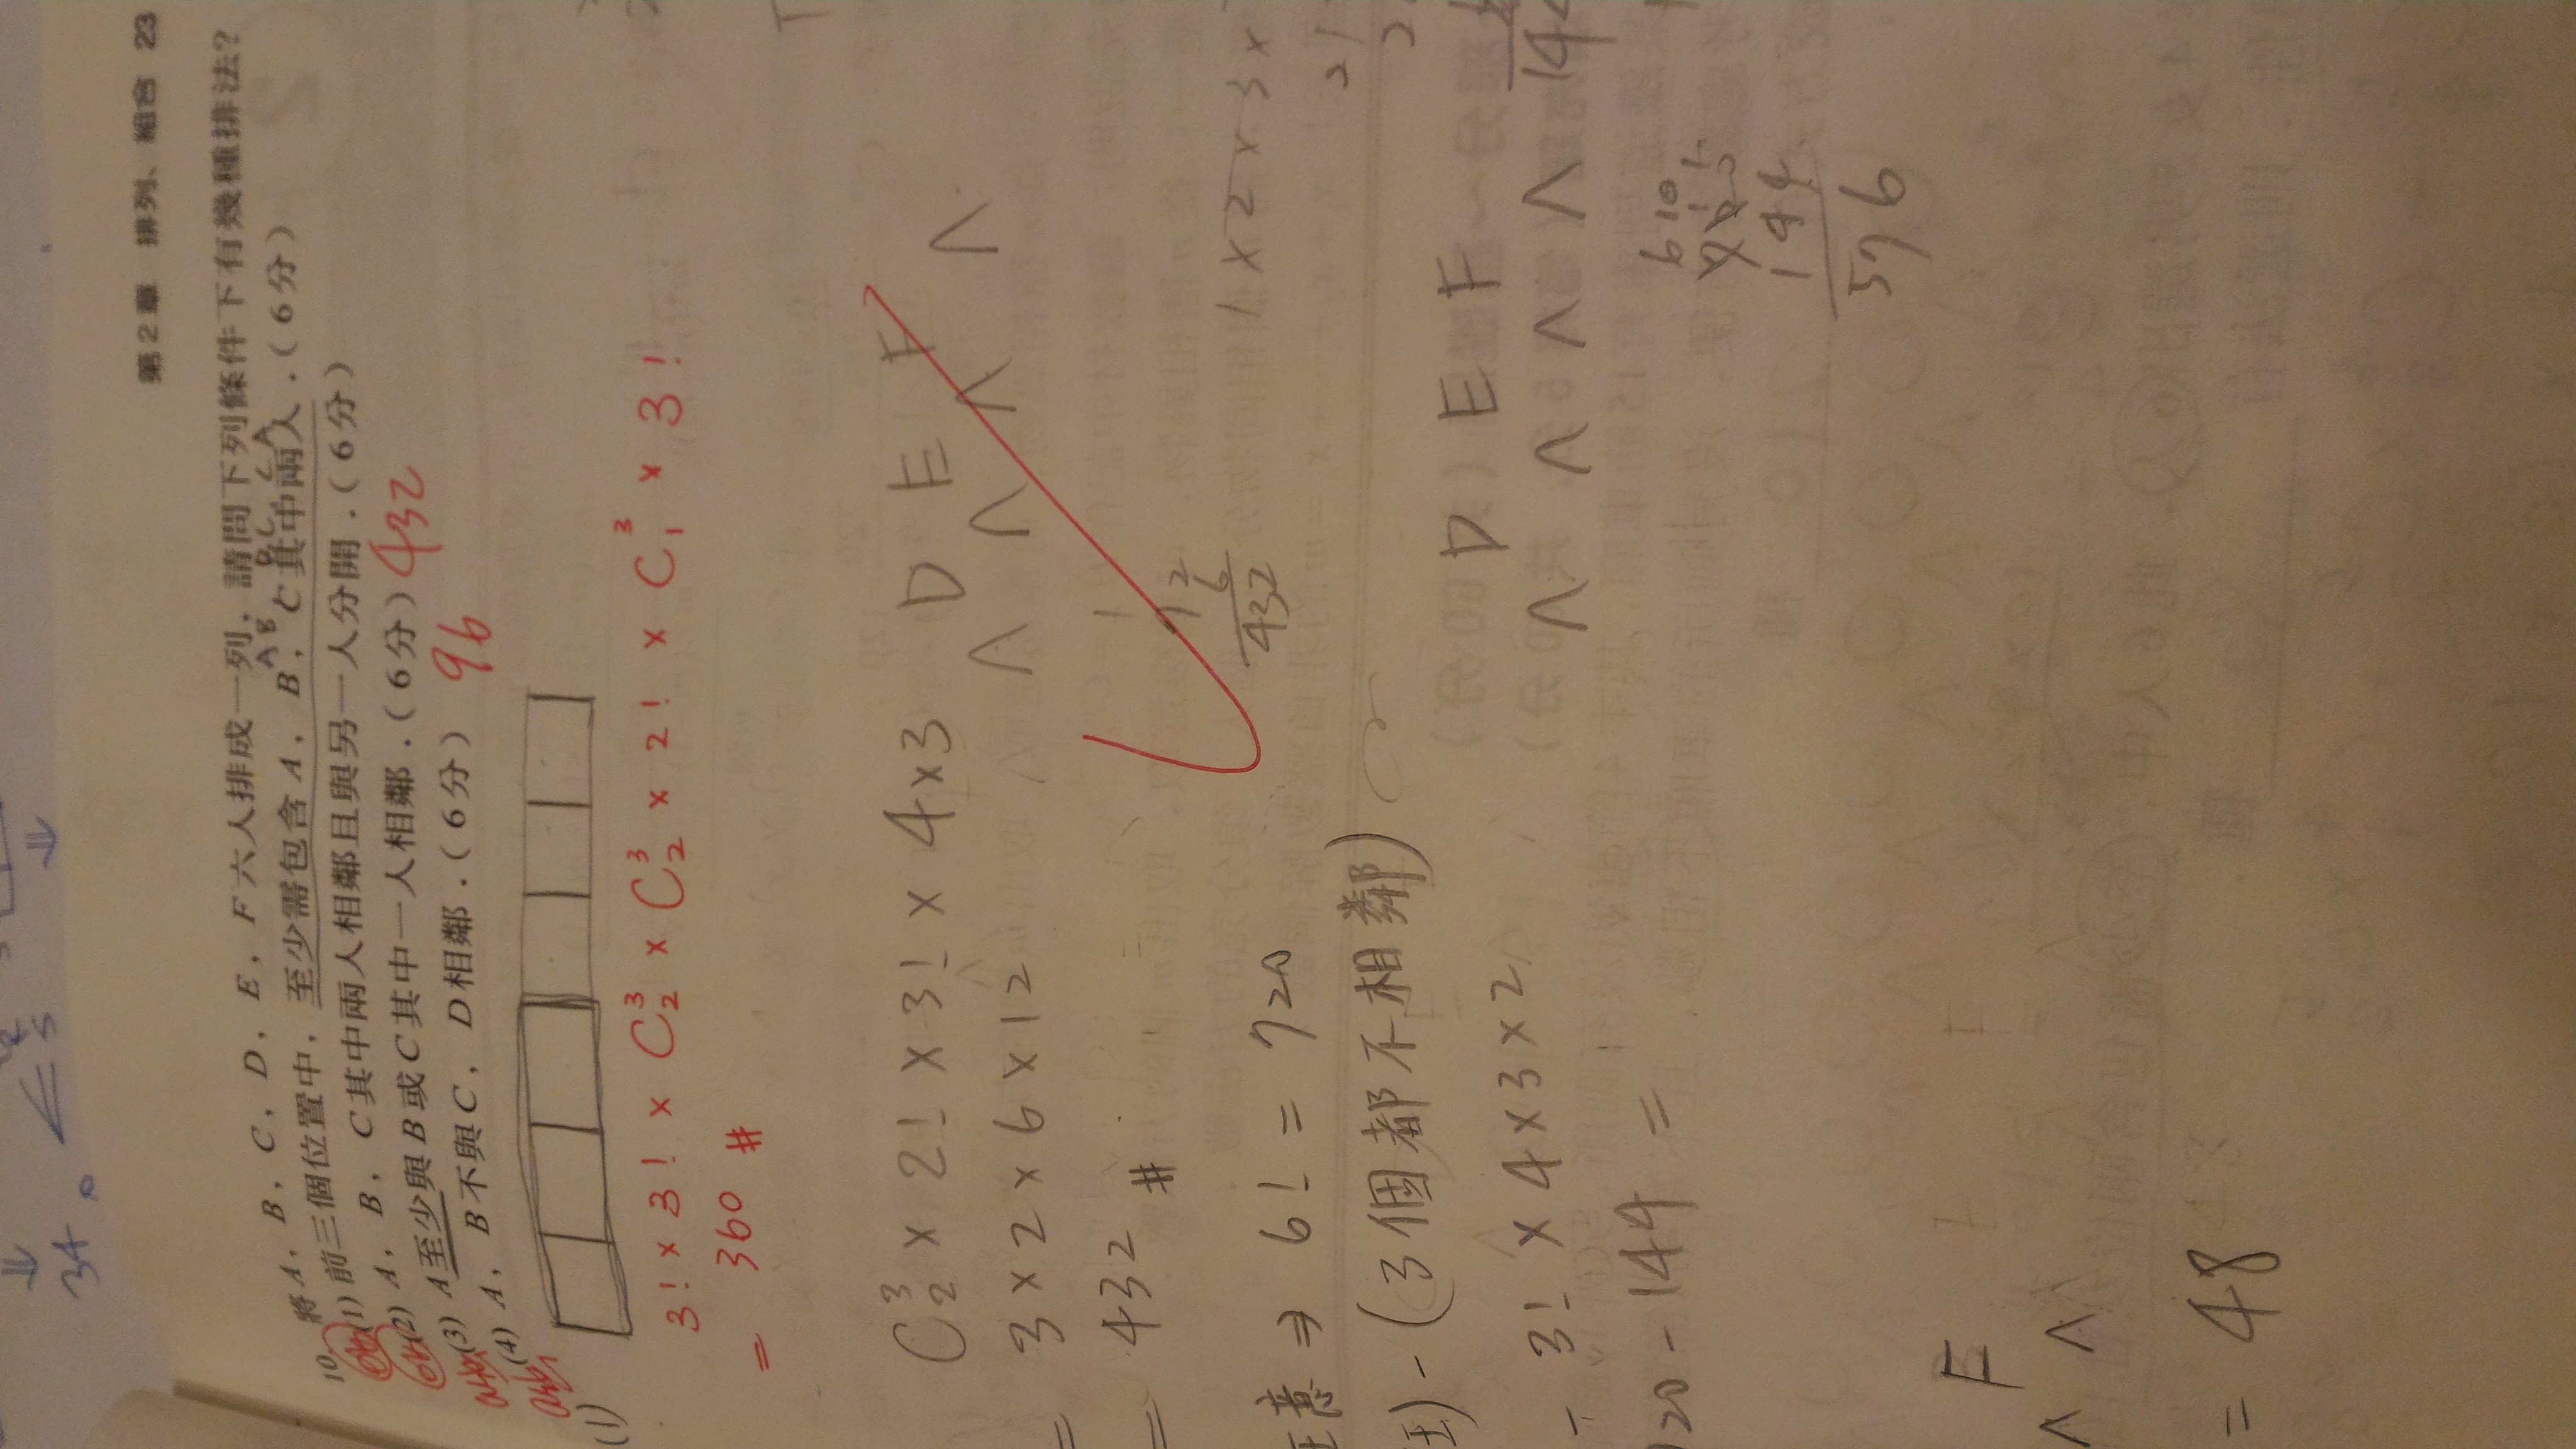 34
第2章 排列、組合 23
10. 將A，B，C，D，E，F六人排成一列，請問下列條件下有幾種排法?
AB, BC, CA
(1) 前三個位置中，至少需包含A，B，C其中兩人．(6分)
(2) A，B，C其中兩人相鄰且與另一人分開．(6分)
(3) A至少與B或C其中一人相鄰．(6分) 432
(4) A，B不與C，D相鄰．(6分) 96
(1)
3! × 3! × C³₂ × C³₂ × 2! × C³₁ × 3!
= 360 #
C³₂ × 2! × 3! × 4×3 D E F
∧ ∧ ∧ ∧
= 3 × 2 × 6 × 12
= 432 #
72
6
432
1 × 2 × 3 ×
意 ⇒ 6! = 720
) - (3個都不相鄰)
D E F
- 3! × 4×3×2 ∧ ∧ ∧ ∧
20 - 144 =
6 10
144
576
F
∧ ∧
= 48